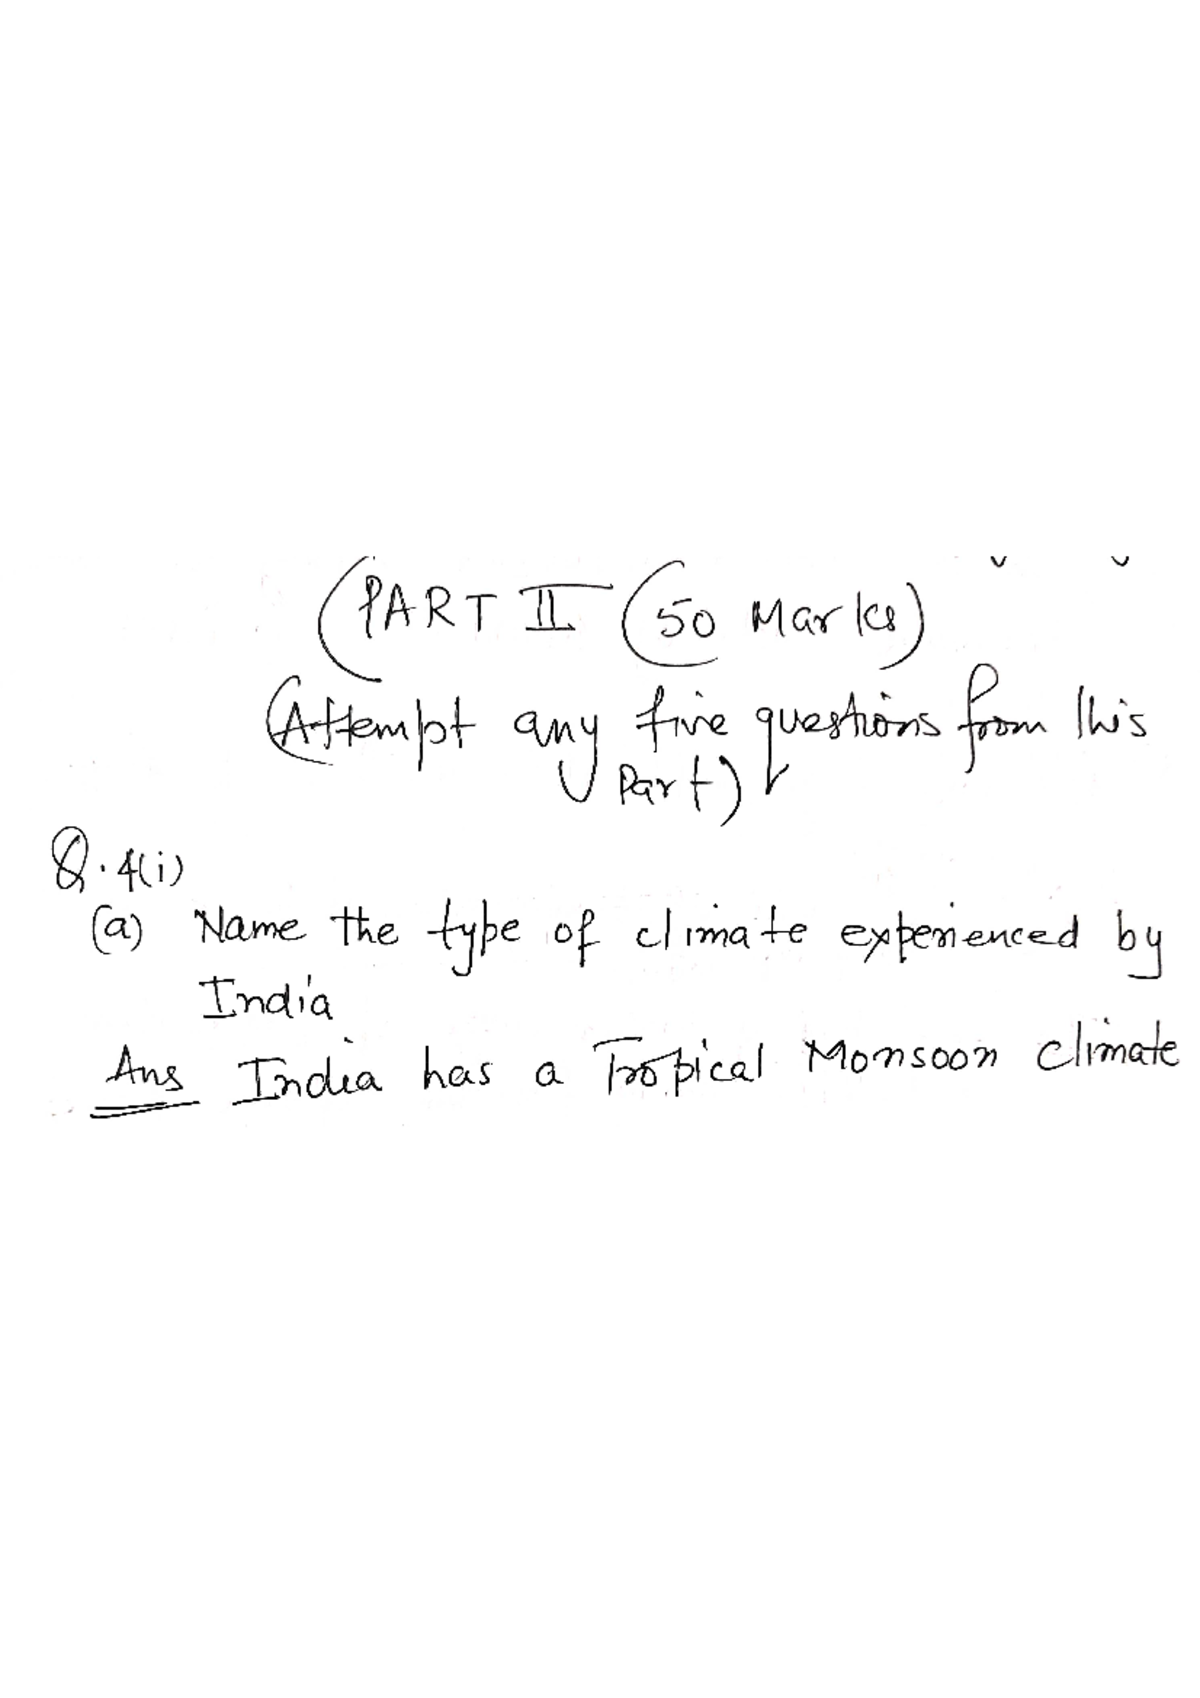 (PART II (50 Marks)
(Attempt any five questions from this
Part)
Q.4(i)
(a) Name the type of climate experienced by
India
Ans India has a Tropical Monsoon climate